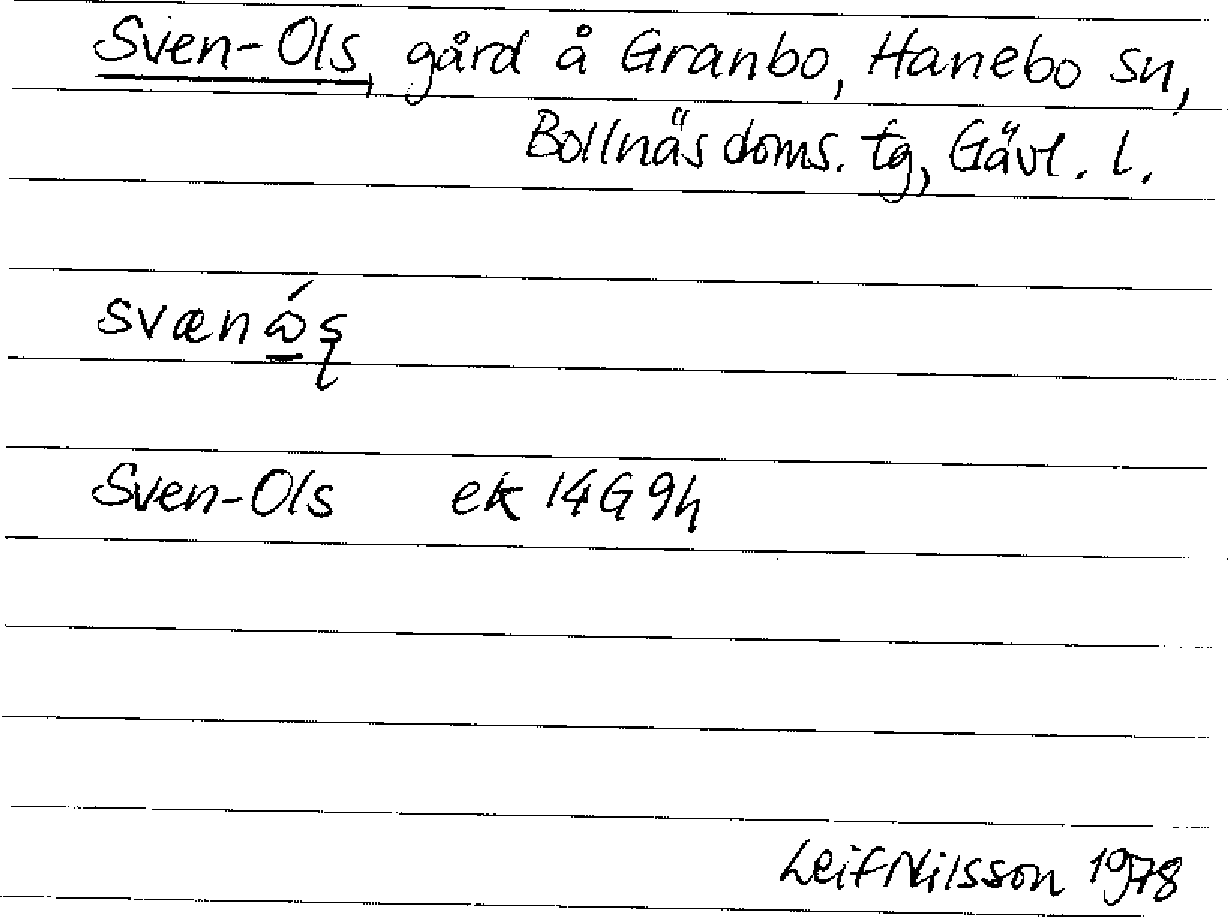 Sven-Ols, gård å Granbo, Hanebo sn,
Bollnäs doms. tg, Gävl. l.
Sven-Ols ek 14G 9h
Leif Nilsson 1978